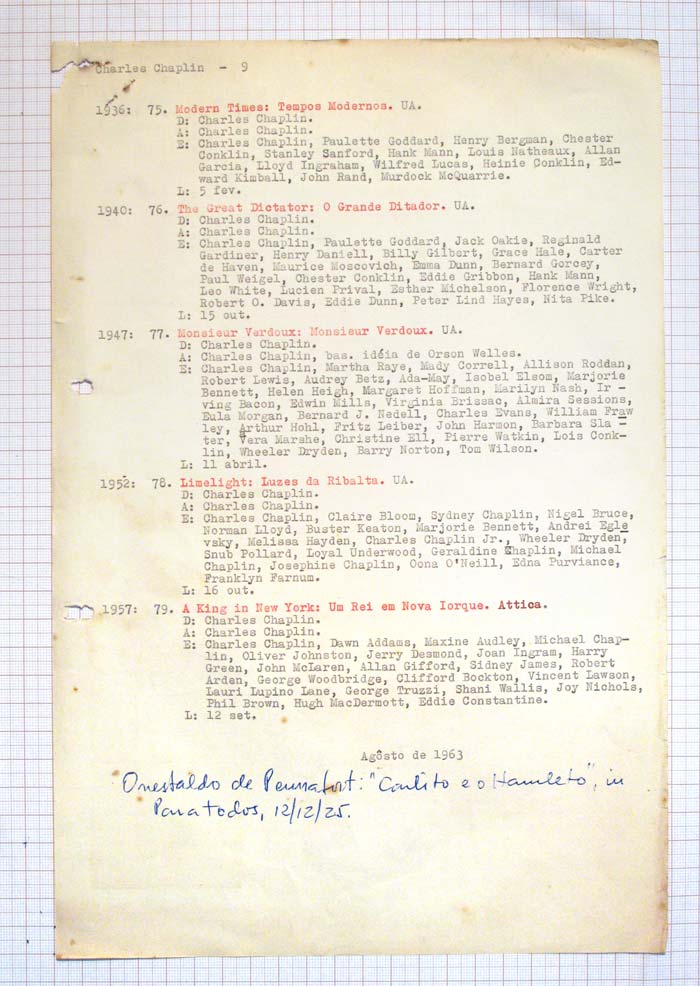 Charles Chaplin - 9
1936: 75. Modern Times: Tempos Modernos. UA.
D: Charles Chaplin.
A: Charles Chaplin.
E: Charles Chaplin, Paulette Goddard, Henry Bergman, Chester
Conklin, Stanley Sanford, Hank Mann, Louis Natheaux, Allan
Garcia, Lloyd Ingraham, Wilfred Lucas, Heinie Conklin, Ed-
ward Kimball, John Rand, Murdock McQuarrie.
L: 5 fev.
1940: 76. The Great Dictator: O Grande Ditador. UA.
D: Charles Chaplin.
A: Charles Chaplin.
E: Charles Chaplin, Paulette Goddard, Jack Oakie, Reginald
Gardiner, Henry Daniell, Billy Gilbert, Grace Hale, Carter
de Haven, Maurice Moscovich, Emma Dunn, Bernard Gorcey,
Paul Weigel, Chester Conklin, Eddie Gribbon, Hank Mann,
Leo White, Lucien Prival, Esther Michelson, Florence Wright,
Robert O. Davis, Eddie Dunn, Peter Lind Hayes, Nita Pike.
L: 15 out.
1947: 77. Monsieur Verdoux: Monsieur Verdoux. UA.
D: Charles Chaplin.
A: Charles Chaplin, bas. idéia de Orson Welles.
E: Charles Chaplin, Martha Raye, Mady Correll, Allison Roddan,
Robert Lewis, Audrey Betz, Ada-May, Isobel Elsom, Marjorie
Bennett, Helen Heigh, Margaret Hoffman, Marilyn Nash, Ir -
ving Bacon, Edwin Mills, Virginia Brissac, Almira Sessions,
Eula Morgan, Bernard J. Nedell, Charles Evans, William Fraw
ley, Arthur Hohl, Fritz Leiber, John Harmon, Barbara Sla -
ter, Vera Marshe, Christine Ell, Pierre Watkin, Lois Conk-
lin, Wheeler Dryden, Barry Norton, Tom Wilson.
L: 11 abril.
1952: 78. Limelight: Luzes da Ribalta. UA.
D: Charles Chaplin.
A: Charles Chaplin.
E: Charles Chaplin, Claire Bloom, Sydney Chaplin, Nigel Bruce,
Norman Lloyd, Buster Keaton, Marjorie Bennett, Andrei Egle
vsky, Melissa Hayden, Charles Chaplin Jr., Wheeler Dryden,
Snub Pollard, Loyal Underwood, Geraldine Chaplin, Michael
Chaplin, Josephine Chaplin, Oona O'Neill, Edna Purviance,
Franklyn Farnum.
L: 16 out.
1957: 79. A King in New York: Um Rei em Nova Iorque. Attica.
D: Charles Chaplin.
A: Charles Chaplin.
E: Charles Chaplin, Dawn Addams, Maxine Audley, Michael Chap-
lin, Oliver Johnston, Jerry Desmond, Joan Ingram, Harry
Green, John McLaren, Allan Gifford, Sidney James, Robert
Arden, George Woodbridge, Clifford Bockton, Vincent Lawson,
Lauri Lupino Lane, George Truzzi, Shani Wallis, Joy Nichols,
Phil Brown, Hugh MacDermott, Eddie Constantine.
L: 12 set.
Agôsto de 1963
Onestaldo de Pennafort: "Carlito e o Hamleto", in
Para todos, 12/12/25.